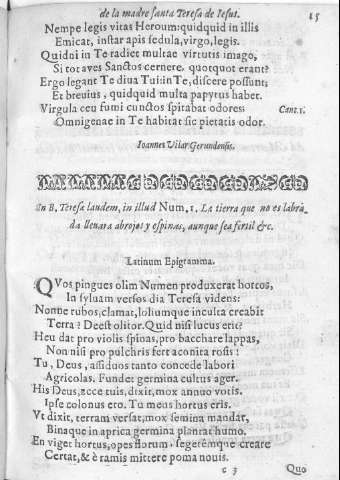 de la madre santa Teresa de Iesus. 15
Nempe legis vitas Heroum: quidquid in illis
Emicat, instar apis sedula, virgo, legis.
Quidni in Te radiet multae virtutis imago,
Si tot aves Sanctos cernere, quotquot erant?
Ergo legant Te diua Tui: in Te, discere possunt:
Et breuius, quidquid multa papyrus habet.
Virgula ceu fumi cunctos spirabat odores: Cant. 1.
Omnigenae in Te habitat sic pietatis odor.
Ioannes Vilar Gerundensis.
In B. Teresa laudem, in illud Num. 1. La tierra que no es labra,
da lleuara abrojos y espinas, aunque sea fertil &c.
Latinum Epigramma.
QVos pingues olim Numen produxerat hortos,
In syluam versos dia Teresa videns:
Nonne rubos, clamat, loliumque inculta creabit
Terra? Deest olitor. Quid nisi lucus erit?
Heu dat pro violis spinas, pro bacchare lappas,
Non nisi pro pulchris fert aconita rosis!
Tu, Deus, assiduos tanto concede labori
Agricolas. Fundet germina cultus ager.
His Deus, ecce tuis, dixit, mox annuo votis.
Ipse colonus ero. Tu meus hortus eris.
Vt dixit, terram versat, mox semina mandat,
Binaque in aprica germina plantat humo.
En viget hortus, opes florum, segetemque creare
Certat, & è ramis mittere poma nouis.
c 3 Quo